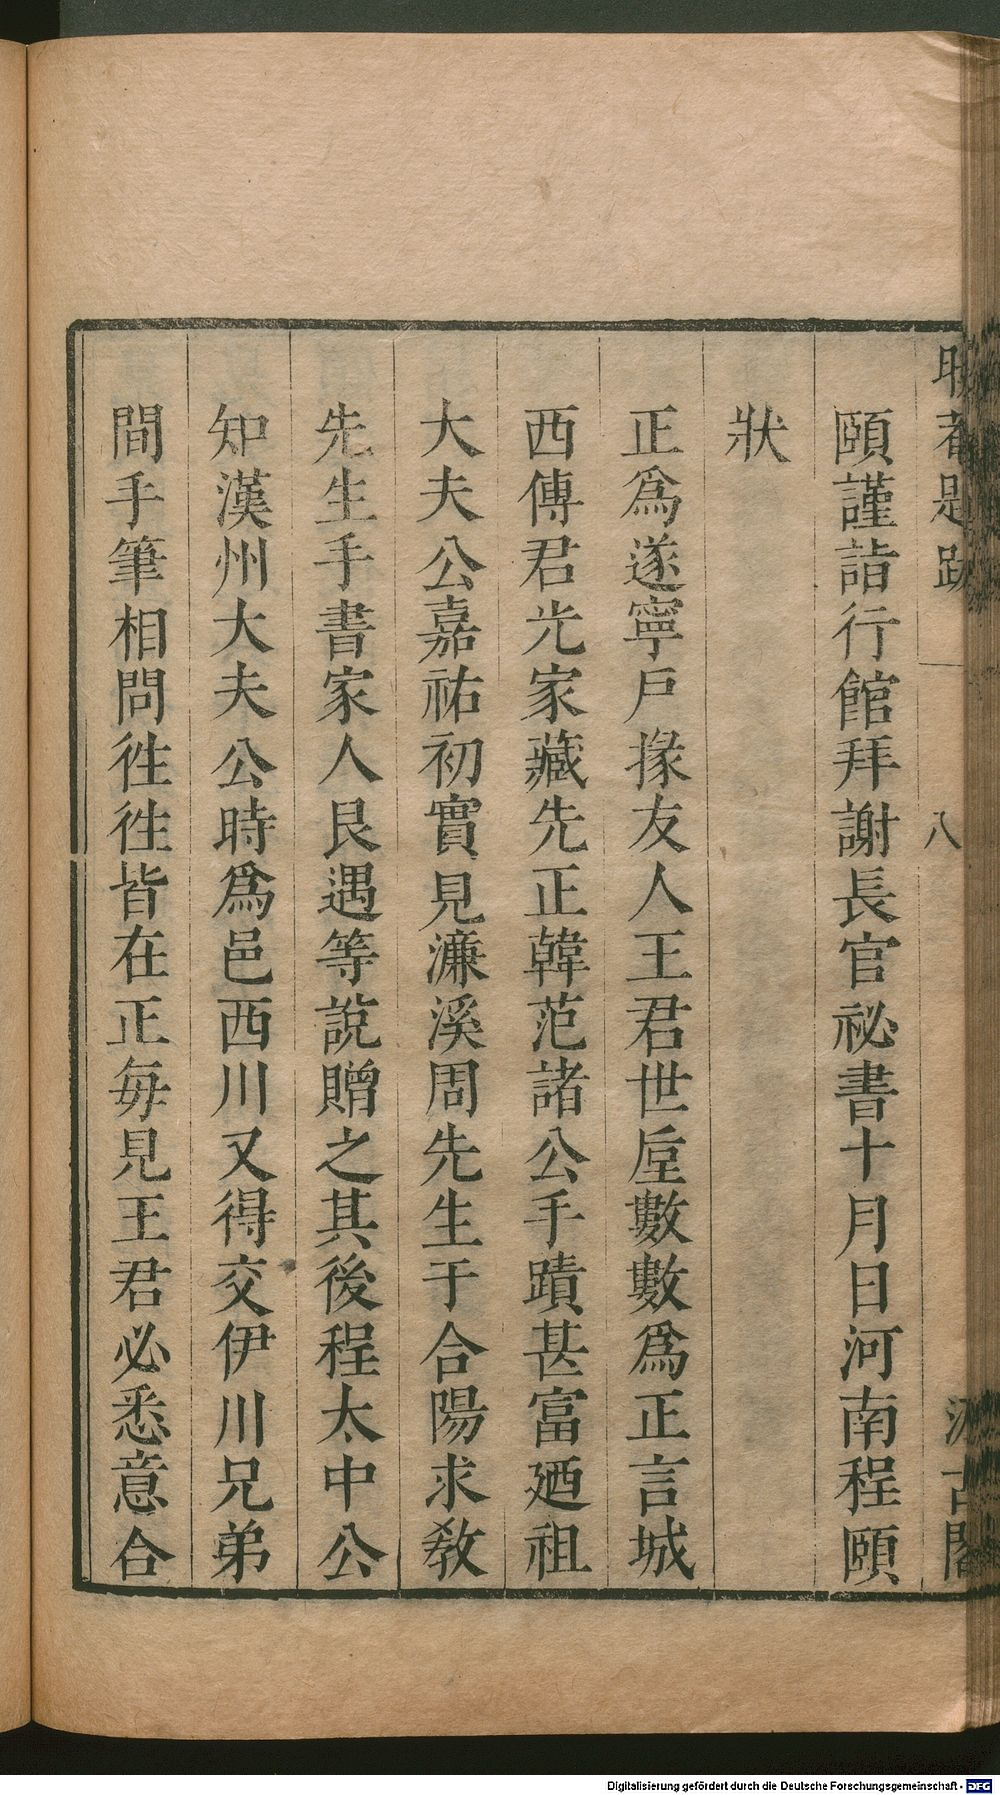 八
古閣
頤謹詣行館拜謝長官祕書十月日河南程頤
狀
正爲遂寧戶掾友人王君世垕數數爲正言城
西傅君光家藏先正韓范諸公手蹟甚富廼祖
大夫公嘉祐初實見濂溪周先生于合陽求敎
先生手書家人艮遇等說贈之其後程太中公
知漢州大夫公時爲邑西川又得交伊川兄弟
間手筆相問徃徃皆在正每見王君必悉意合
Digitalisierung gefördert durch die Deutsche Forschungsgemeinschaft - DFG